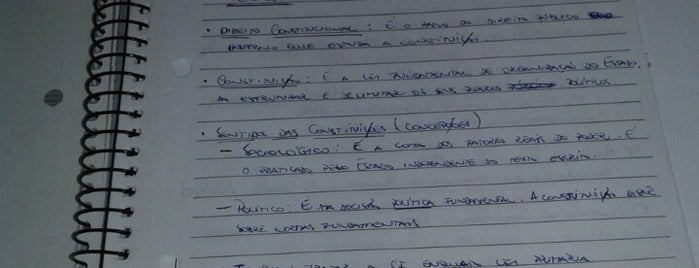 • DIREITO CONSTITUCIONAL: É O RAMO DO DIREITO PÚBLICO
INTERNO QUE ESTUDA A CONSTITUIÇÃO.
• CONSTITUIÇÃO: É A LEI FUNDAMENTAL DE ORGANIZAÇÃO DO ESTADO,
AO ESTRUTURAR E DELIMITAR OS SEUS PODERES POLÍTICOS
• SENTIDOS DAS CONSTITUIÇÕES (CONCEPÇÕES)
– SOCIOLÓGICO: É A SOMA DOS FATORES REAIS DO PODER. É
O PRATICADO PELO ESTADO INDEPENDENTE DO TEXTO ESCRITO.
– POLÍTICO: É UMA DECISÃO POLÍTICA FUNDAMENTAL. A CONSTITUIÇÃO DISPÕE
SOBRE NORMAS FUNDAMENTAIS
A CF ENQUANTO LEI PRIMÁRIA